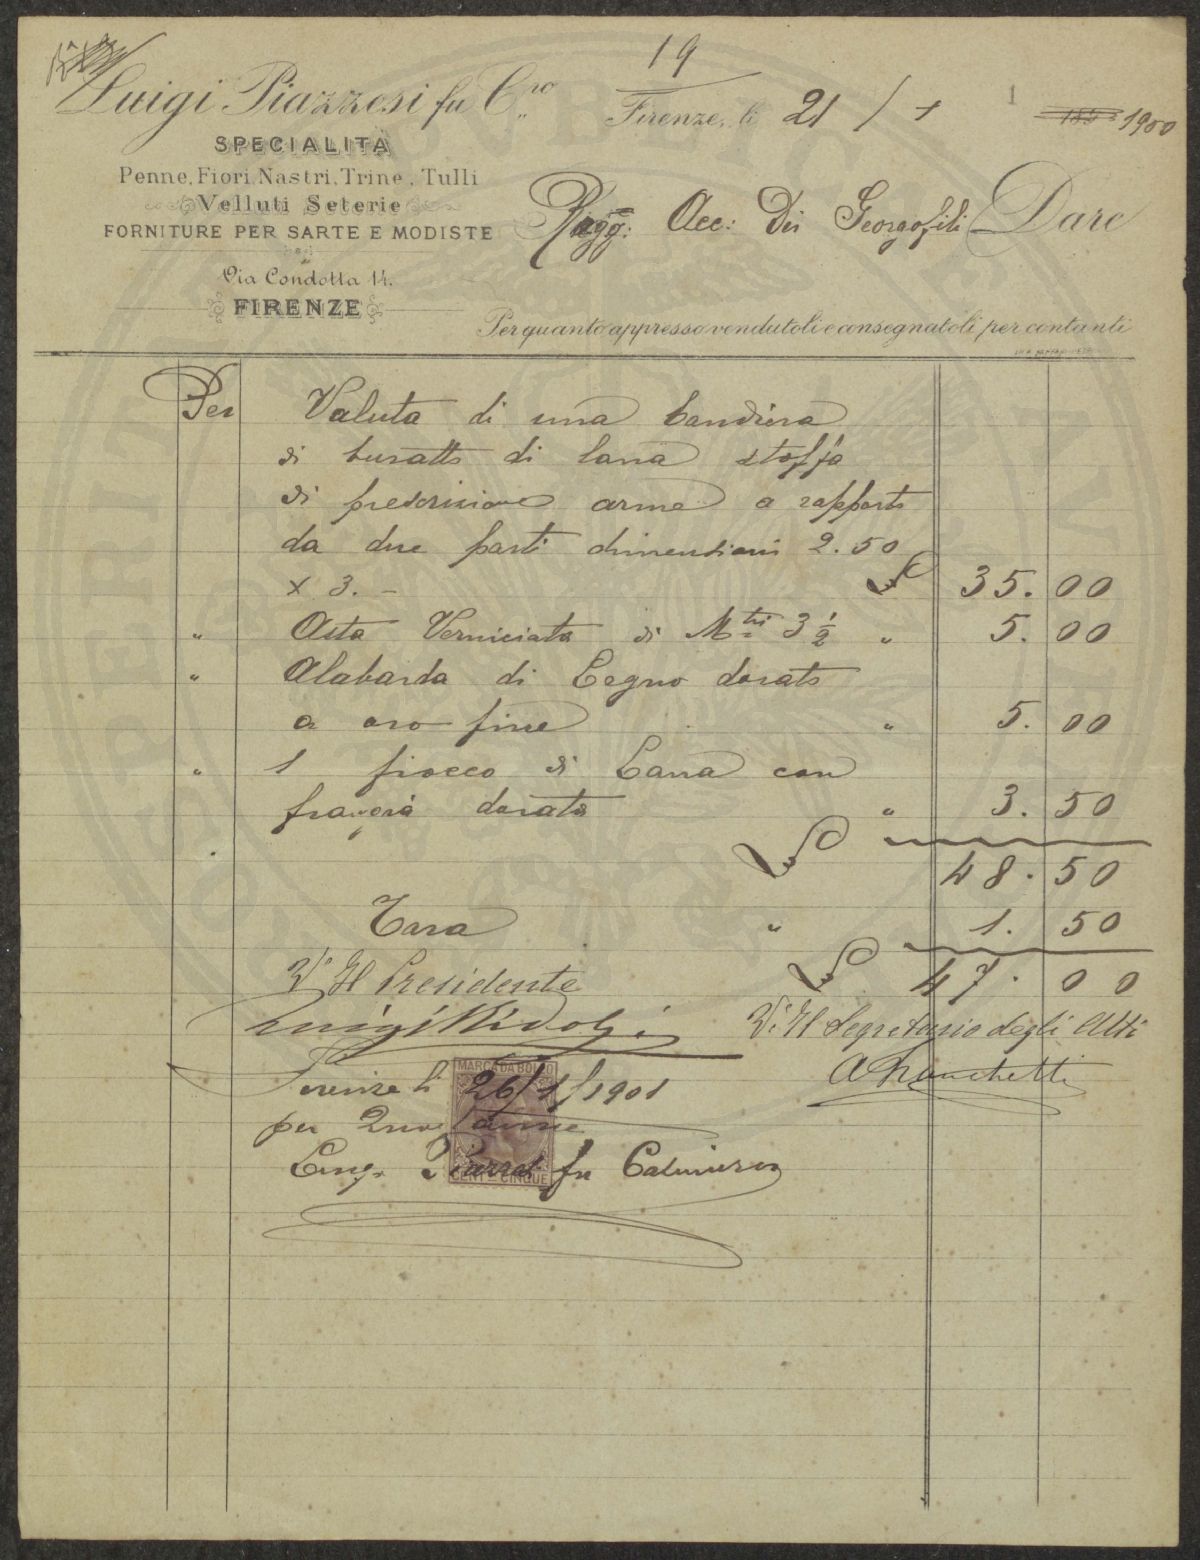 19
Luigi Piazzesi fu C.ro
Firenze, li 21 / 1 1900
SPECIALITÀ
Penne, Fiori, Nastri, Trine, Tulli
Velluti Seterie
FORNITURE PER SARTE E MODISTE
Via Condotta 14.
FIRENZE
Ragg: Acc: Dei Georgofili Dare
Per quanto appresso vendutoli e consegnatoli per contanti
Per Valuta di una bandiera
di buratto di lana stoffa
di prescrizione arme a rapporto
da due parti dimensioni 2.50
x 3. - £ 35.00
" Asta Verniciata di Mtri 3 1/2 " 5.00
" Alabarda di Legno dorato
a oro fine " 5.00
" 1 fiocco di Lana con
frangia dorata " 3.50
£ 48.50
Tara " 1.50
£ 47.00
V° Il Presidente
Luigi Ridolfi
V° Il Segretario degli Atti
Firenze li 26/1/1901
MARCA DA BOLLO
per
Luigi Piazzesi fu Casimirro
CENT. CINQUE